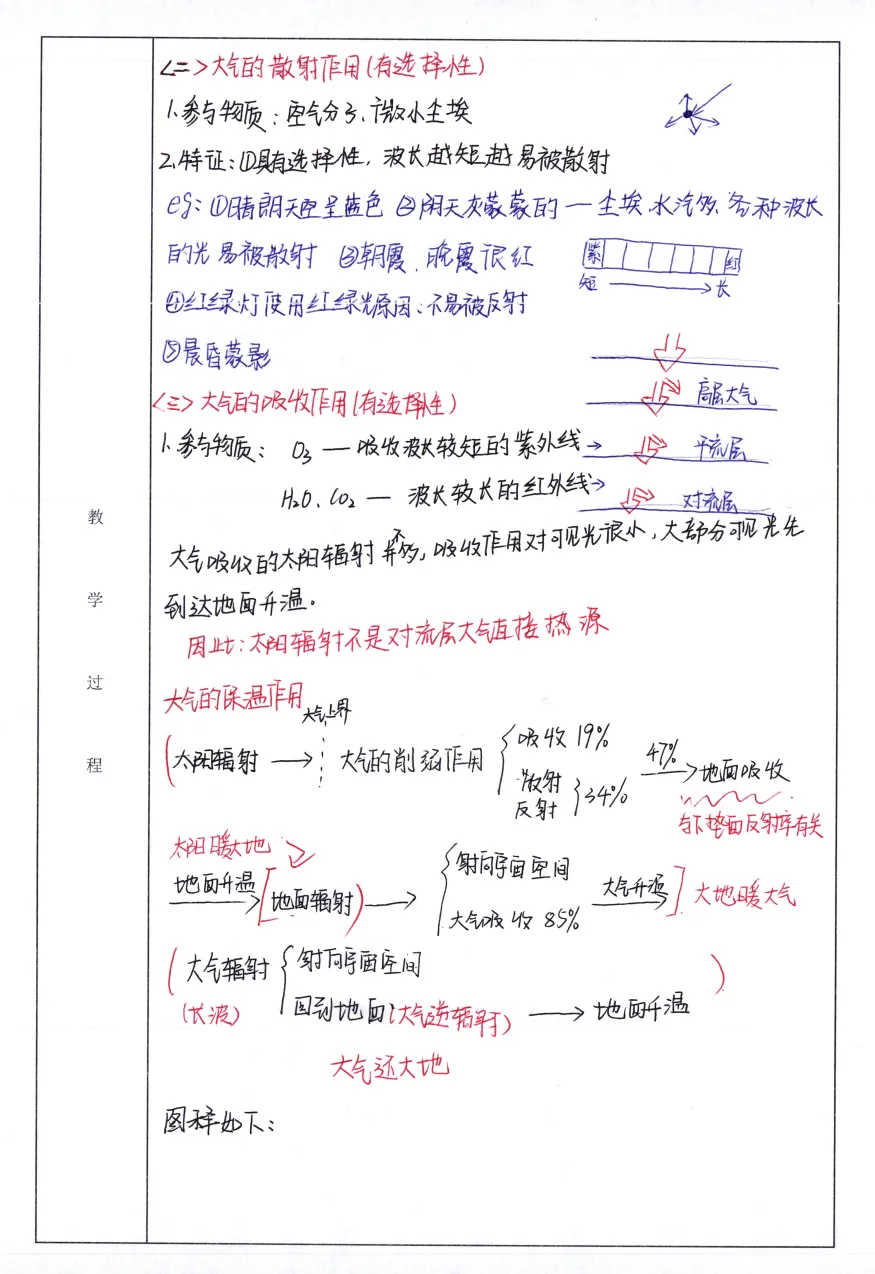 教学过程
<二>大气的散射作用(有选择性)
1.参与物质：空气分子、微小尘埃
2.特征：①具有选择性，波长越短越易被散射
eg：①晴朗天空呈蓝色 ②阴天灰蒙蒙的 — 尘埃、水汽多、各种波长
的光易被散射 ③朝霞、晚霞很红
紫 红
短 → 长
④红绿灯使用红绿光原因：不易被反射
⑤晨昏蒙影
<三>大气的吸收作用(有选择性)
高层大气
1.参与物质： O₃ — 吸收波长较短的紫外线→ 平流层
H₂O、CO₂ — 波长较长的红外线→ 对流层
大气吸收的太阳辐射并不多，吸收作用对可见光很小，大部分可见光先
到达地面升温。
因此：太阳辐射不是对流层大气直接热源
大气的保温作用
大气上界
(太阳辐射 → 大气的削弱作用 { 吸收 19%
散射 反射 } 34%
47% → 地面吸收
与下垫面反射率有关
太阳暖大地
地面升温 → [地面辐射) → { 射向宇宙空间
大气吸收 85% 大气升温 → ] 大地暖大气
(大气辐射 { 射向宇宙空间 )
(长波) 回到地面(大气逆辐射) → 地面升温
大气还大地
图释如下：